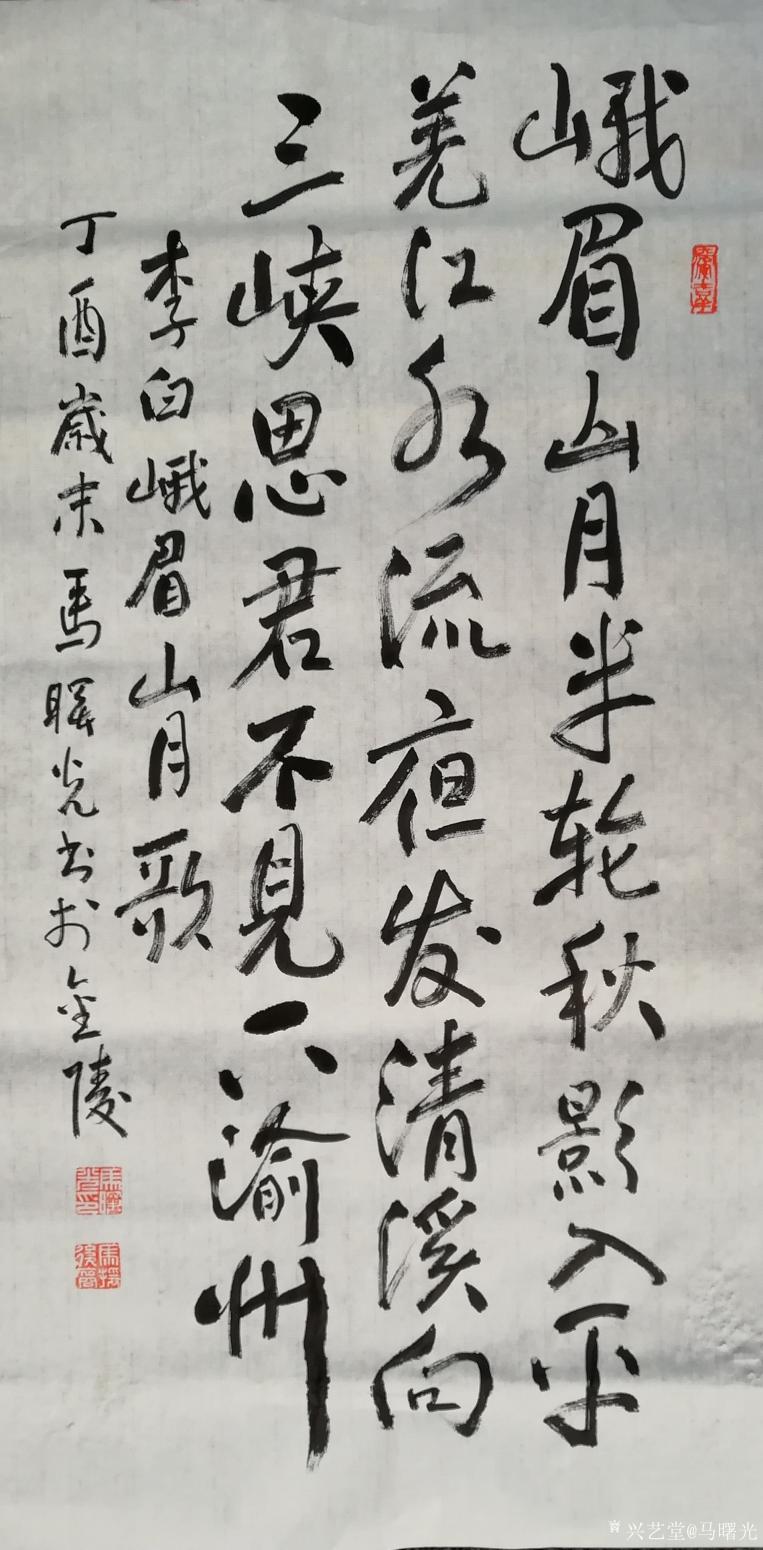 峨眉山月半轮秋影入平
羌江水流夜发清溪向
三峡思君不見下渝州
李白峨眉山月歌
丁酉歲末马曙光书於金陵
馬曙光印
馬援後裔
兴艺堂@马曙光